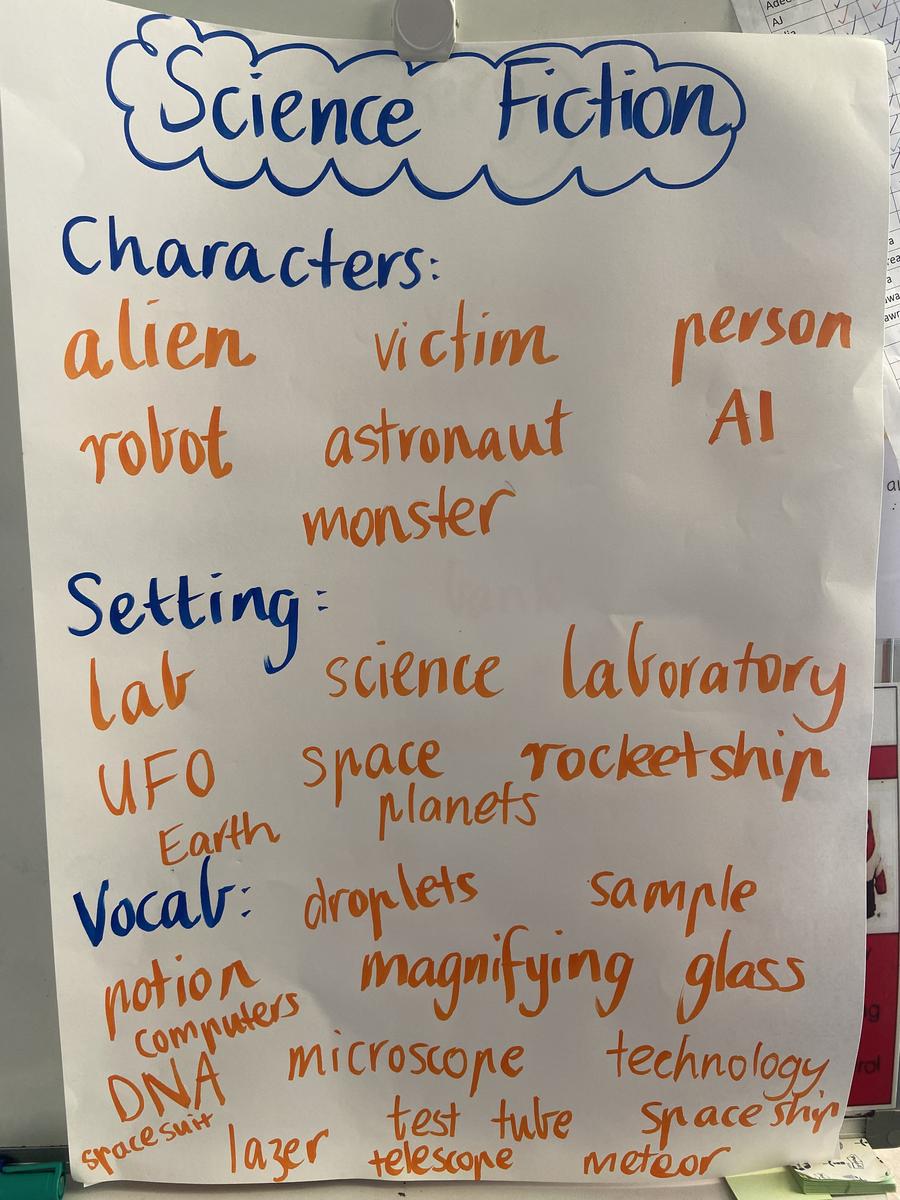 Science Fiction
Characters:
alien victim person
robot astronaut AI
monster
Setting:
lab science laboratory
UFO space rocketship
Earth planets
Vocab: droplets sample
potion magnifying glass
computers
DNA microscope technology
spacesuit test tube space ship
lazer telescope meteor
AJ